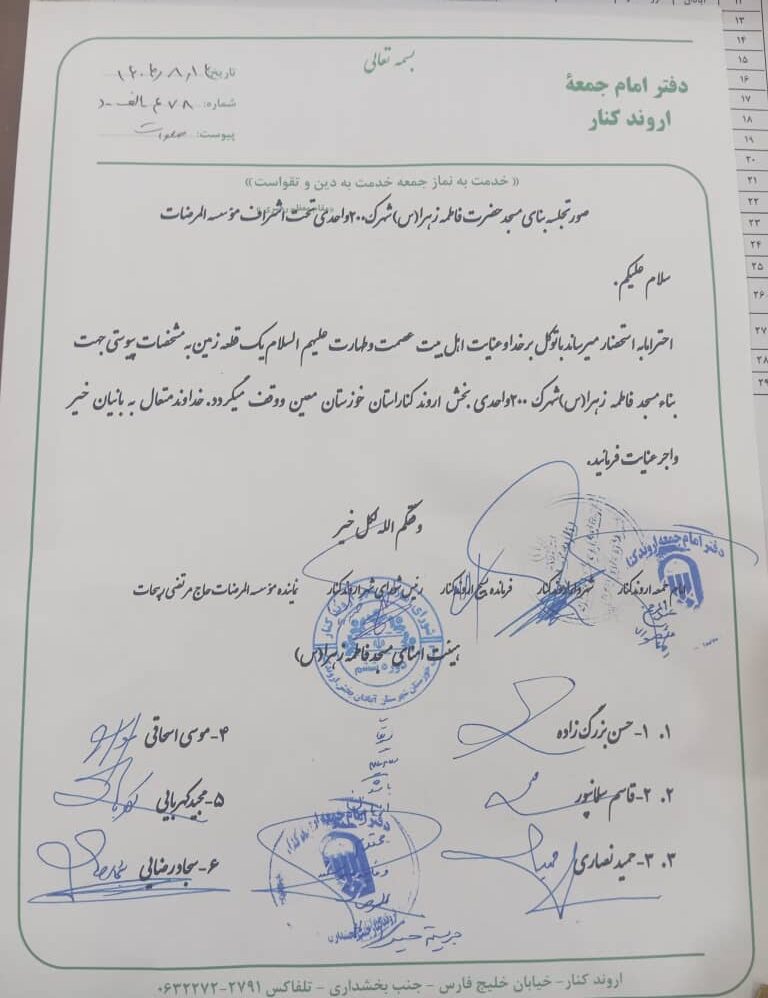 بسمه تعالی
دفتر امام جمعهٔ
اروند کنار
تاریخ:
شماره: ۶۷۸
پیوست:
« خدمت به نماز جمعه خدمت به دین و تقواست»
صورتجلسه بنای مسجد حضرت فاطمه زهرا(س)شهرک ۲۰۰واحدی تحت اشراف مؤسسه المرضات
سلام علیکم.
احترامابه استحضار میرساند باتوکل برخدا و عنایت اهل بیت عصمت و طهارت علیهم السلام یک قطعه زمین به مشخصات پیوستی جهت
بناء مسجد فاطمه زهرا(س)شهرک ۲۰۰واحدی بخش اروند کنار استان خوزستان معین ووقف میگردد.خداوند متعال به بانیان خیر
واجر عنایت فرمائید.
وفقکم الله لکل خیر
امام جمعه اروندکنار شهردار اروندکنار فرمانده بسیج اروندکنار رئیس شورای شهر اروندکنار نماینده مؤسسه المرضات حاج مرتضی ریحات
هیئت امنای مسجد فاطمه زهرا(س)
۱. ۱-حسن بزرگ زاده
۲. ۲-قاسم سلمانپور
۳. ۳-حمید نصاری
۴-موسی اسحاقی
۵-مجید کهربایی
۶-سجاد رضایی
دفتر امام جمعه اروند کنار
اروند کنار- خیابان خلیج فارس - جنب بخشداری - تلفاکس ۲۷۹۱-۰۶۳۲۲۷۲
۱۳
۱۴
۱۵
۱۶
۱۷
۱۸
۱۹
۲۰
۲۱
۲۲
۲۳
۲۴
۲۵
۲۶
۲۷
۲۸
۲۹